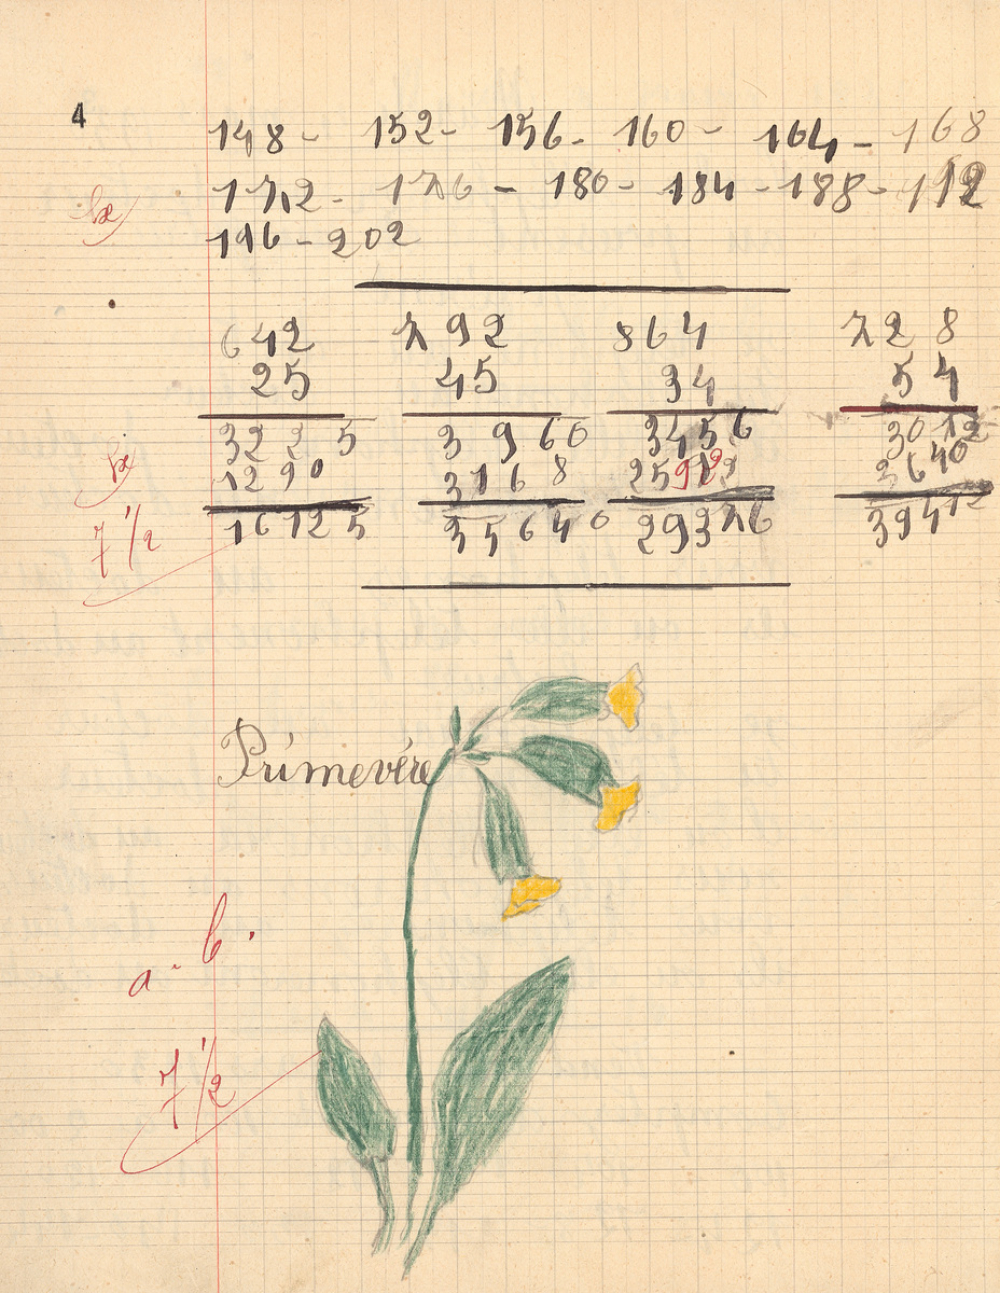 4
148 - 152 - 156 - 160 - 164 - 168
172 - 176 - 180 - 184 - 188 - 192
bx
196 - 202
642 792 864 728
25 45 34 54
3225 3960 3456 3012
1290 3168 2592 3640
bx
16125 35640 29376 39412
7 1/2
Primevère
a. b.
7 1/2